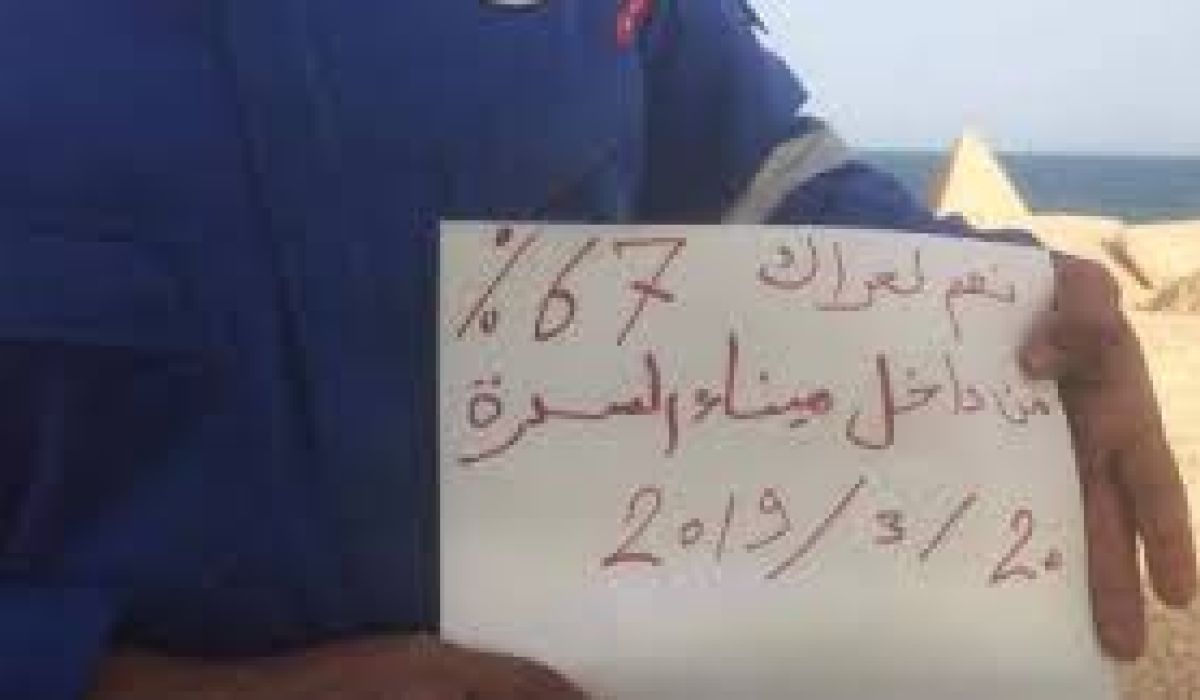 نعم لعراك 67%
من داخل ميناء السدرة
20/3/2019